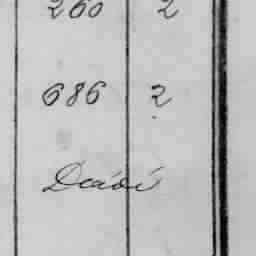 260 2
686 2